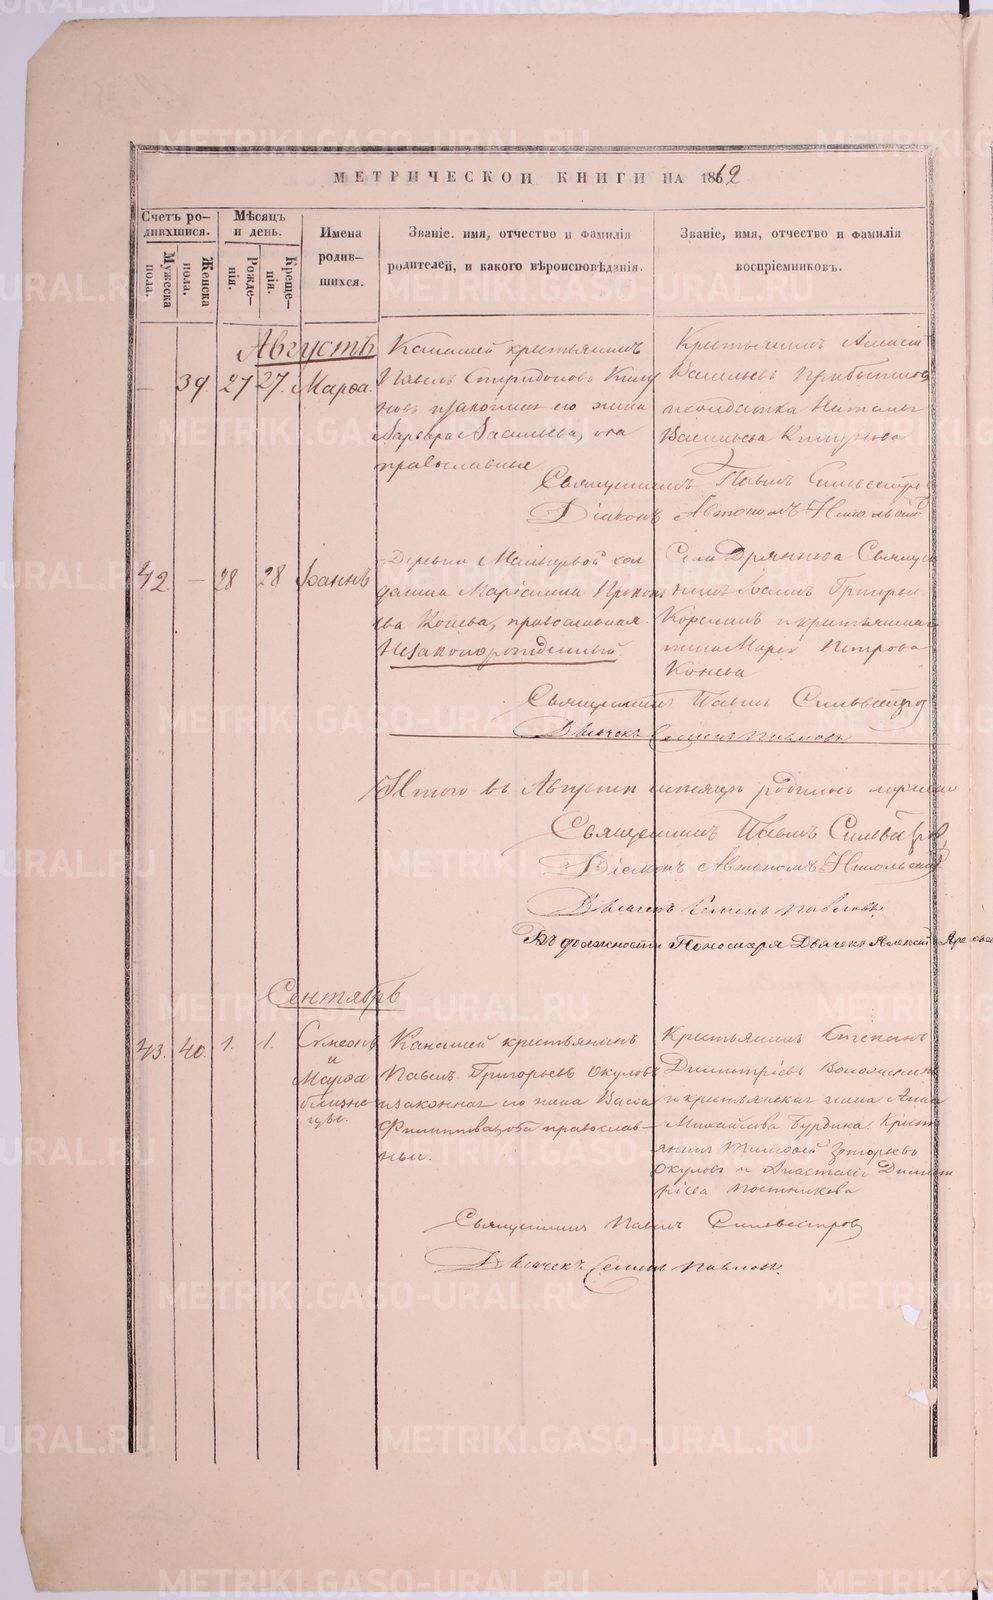 МЕТРИЧЕСКОЙ КНИГИ НА 1862
Счетъ ро-
дившихся.
Мѣсяцъ
и день.
Мужеска
пола.
Женска
пола.
Рожде-
нія.
Креще-
нія.
Имена
родив-
шихся.
Званіе. имя, отчество и фамилія
родителей, и какого вѣроисповѣданія.
Званіе, имя, отчество и фамилія
воспріемниковъ.
Августъ
— 39. 27 27. Марѳа.
крестьянинъ
Павелъ Спиридоновъ
законная его жена
Варвара Васильева, оба
православные
Крестьянинъ Алексій
Васильевъ
солдатка Наталья
Васильева
Священникъ Павелъ Сильвестровъ
Діаконъ Автономъ Никольскій
42. — 28 28 Іоаннъ
Деревни
Коціева, православная
Незаконорожденный.
Села Дрянновa Священ
никъ Іоаннъ Григорьевъ
жена Марѳа Петрова
Конева
Священникъ Павелъ Сильвестровъ
Дьячекъ Семенъ Павловъ
Итого въ Августѣ мѣсяцѣ родилось
Священникъ Павелъ Сильвестровъ
Діаконъ Автономъ Никольскій
Дьячекъ Семенъ Павловъ.
Въ должности Пономаря Дьячекъ Алексій
Сентябрь
43. 40. 1. 1. Симеонъ
и
Марѳа
близне
цы.
крестьянинъ
Павелъ Григорьевъ Окуловъ
и законная его жена Васса
Филиппова, оба православ-
ные.
Крестьянинъ Стефанъ
Димитріевъ
и крестьянская жена Анна
Михайлова Бурдина. Кресть
янинъ Тимоѳей Григорьевъ
Окуловъ и Анастасія Димит
ріева Постникова
Священникъ Павелъ Сильвестровъ
Дьячекъ Семенъ Павловъ.
METRIKI.GASO-URAL.RU